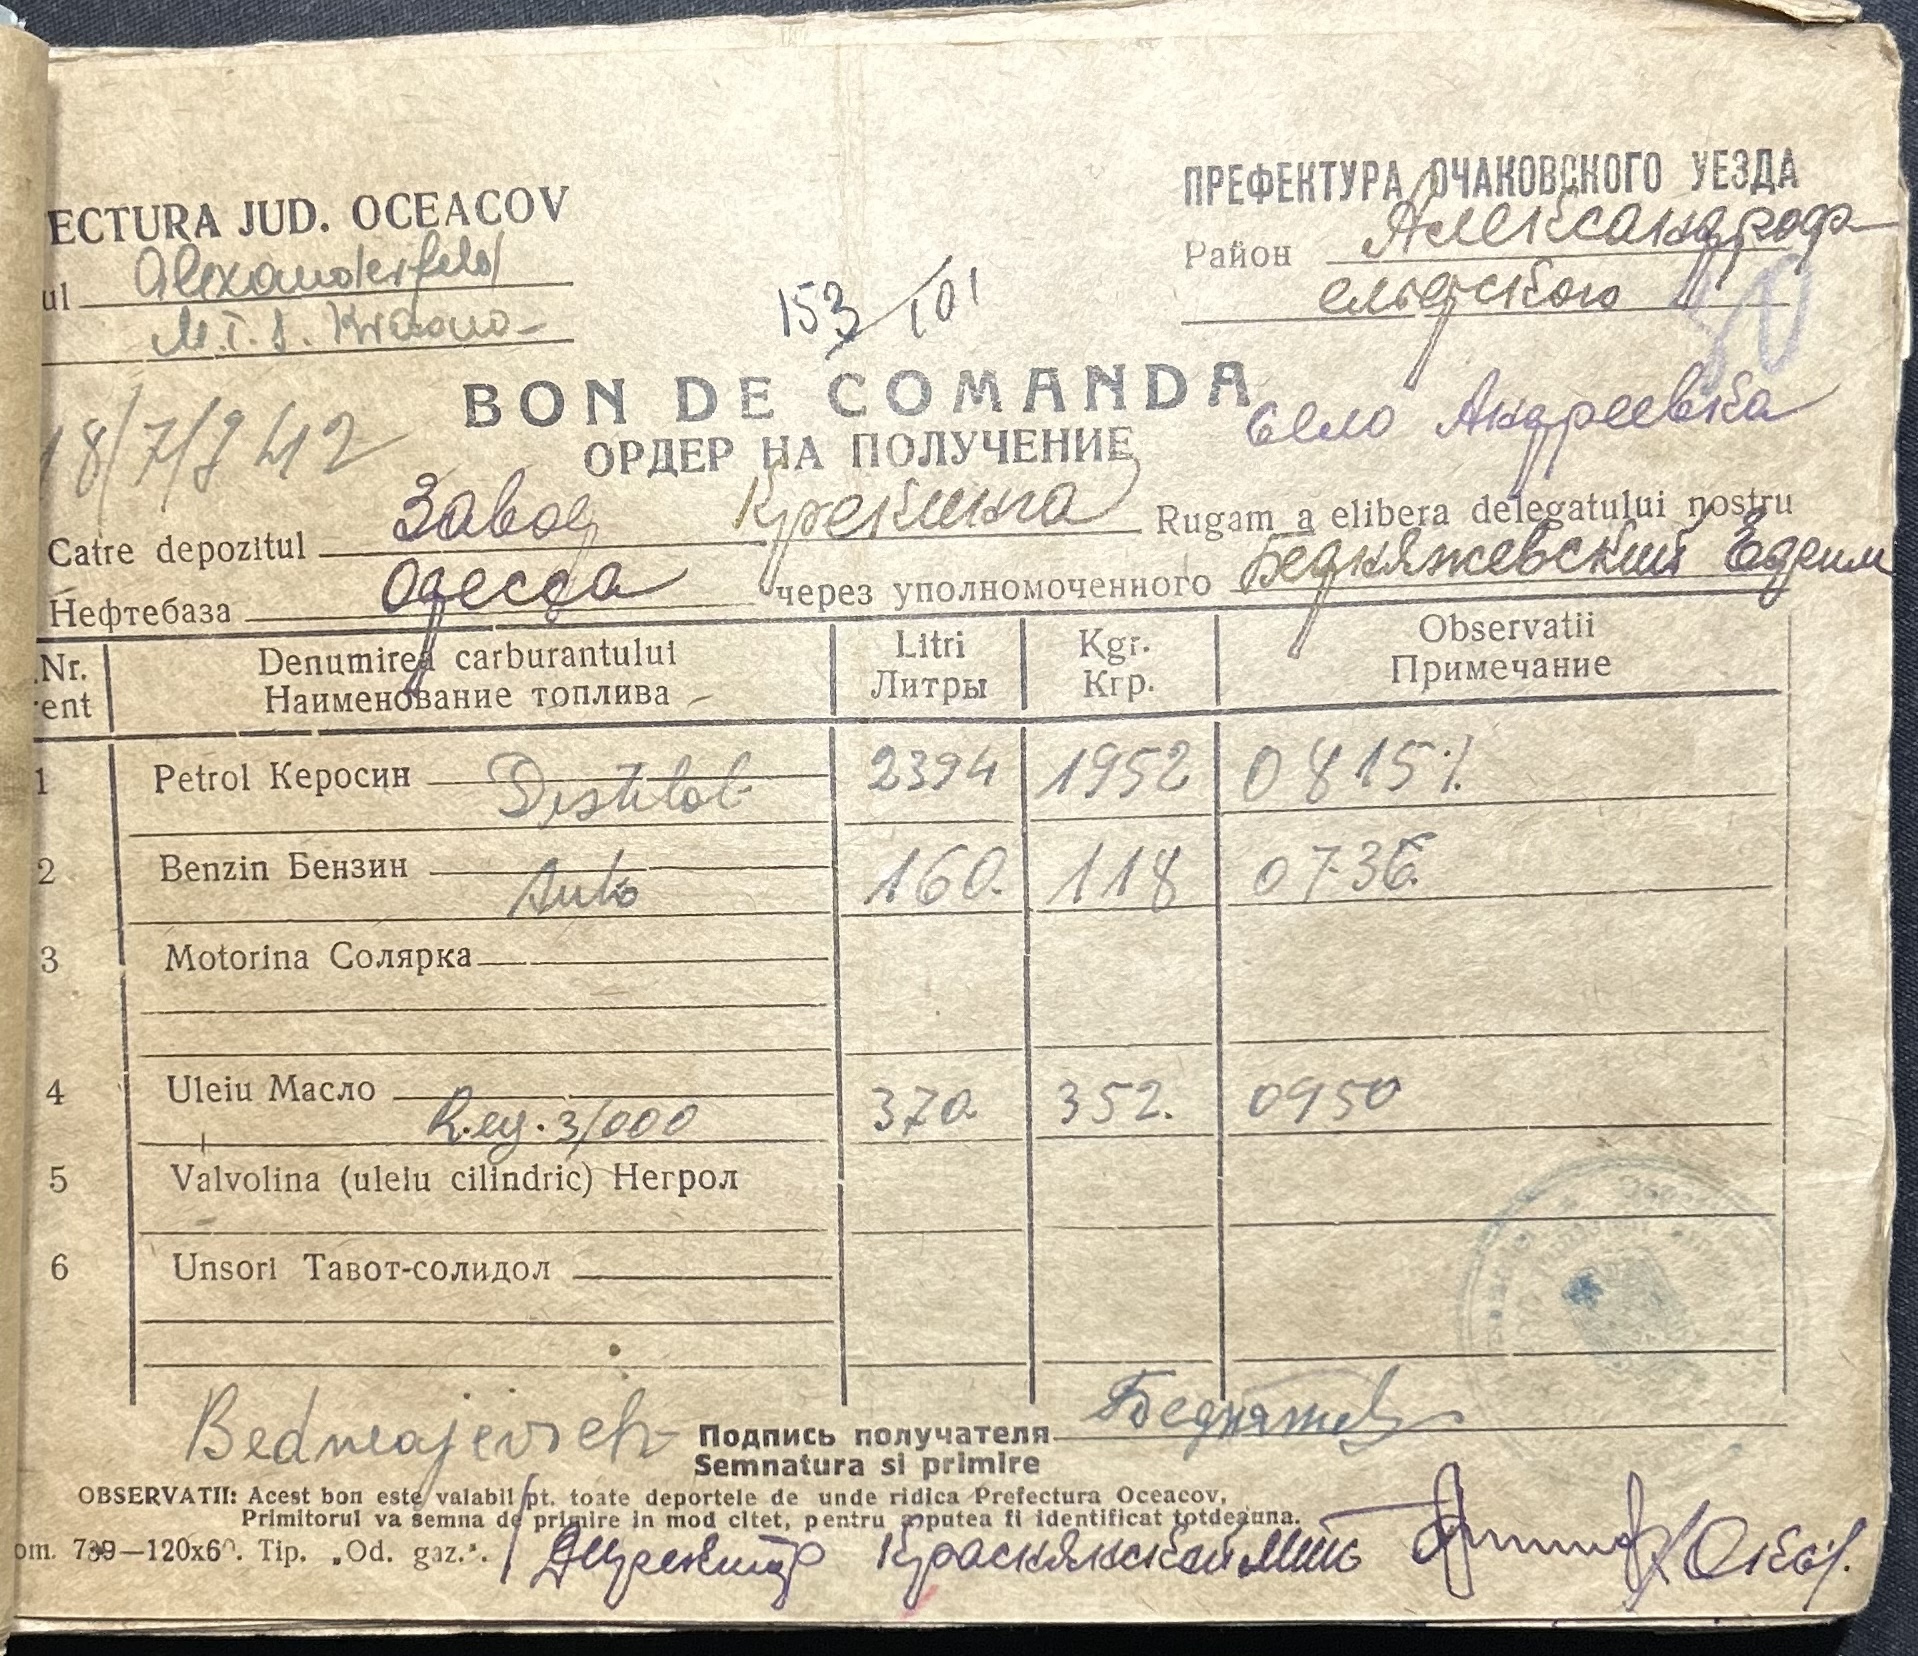 ECTURA JUD. OCEACOV
ПРЕФЕКТУРА ОЧАКОВСКОГО УЕЗДА
ul Alexanderfeld
Район Александроф-
M.T.S. Krasno-
ельдского
153/101
50
18/7/942
BON DE COMANDA
Село Андреевка
ОРДЕР НА ПОЛУЧЕНИЕ
Catre depozitul Завод Крекинга Rugam a elibera delegatului nostru
Нефтебаза Одесса через уполномоченного Бедняжевский Ефим
Nr. Denumirea carburantului Litri Kgr. Observatii
rent Наименование топлива Литры Кгр. Примечание
1 Petrol Керосин Distilat 2394 1952 0815%
2 Benzin Бензин Auto 160. 118 0736.
3 Motorina Солярка
4 Uleiu Масло Reg. 3/000 370. 352. 0950
5 Valvolina (uleiu cilindric) Негрол
6 Unsori Тавот-солидол
Подпись получателя Бедняжев
Semnatura si primire
OBSERVATII: Acest bon este valabil pt. toate deportele de unde ridica Prefectura Oceacov,
Primitorul va semna de primire in mod citet, pentru aputea fi identificat totdeauna.
om. 739—120x60. Tip. „Od. gaz.".
Директор Краснянской МТС